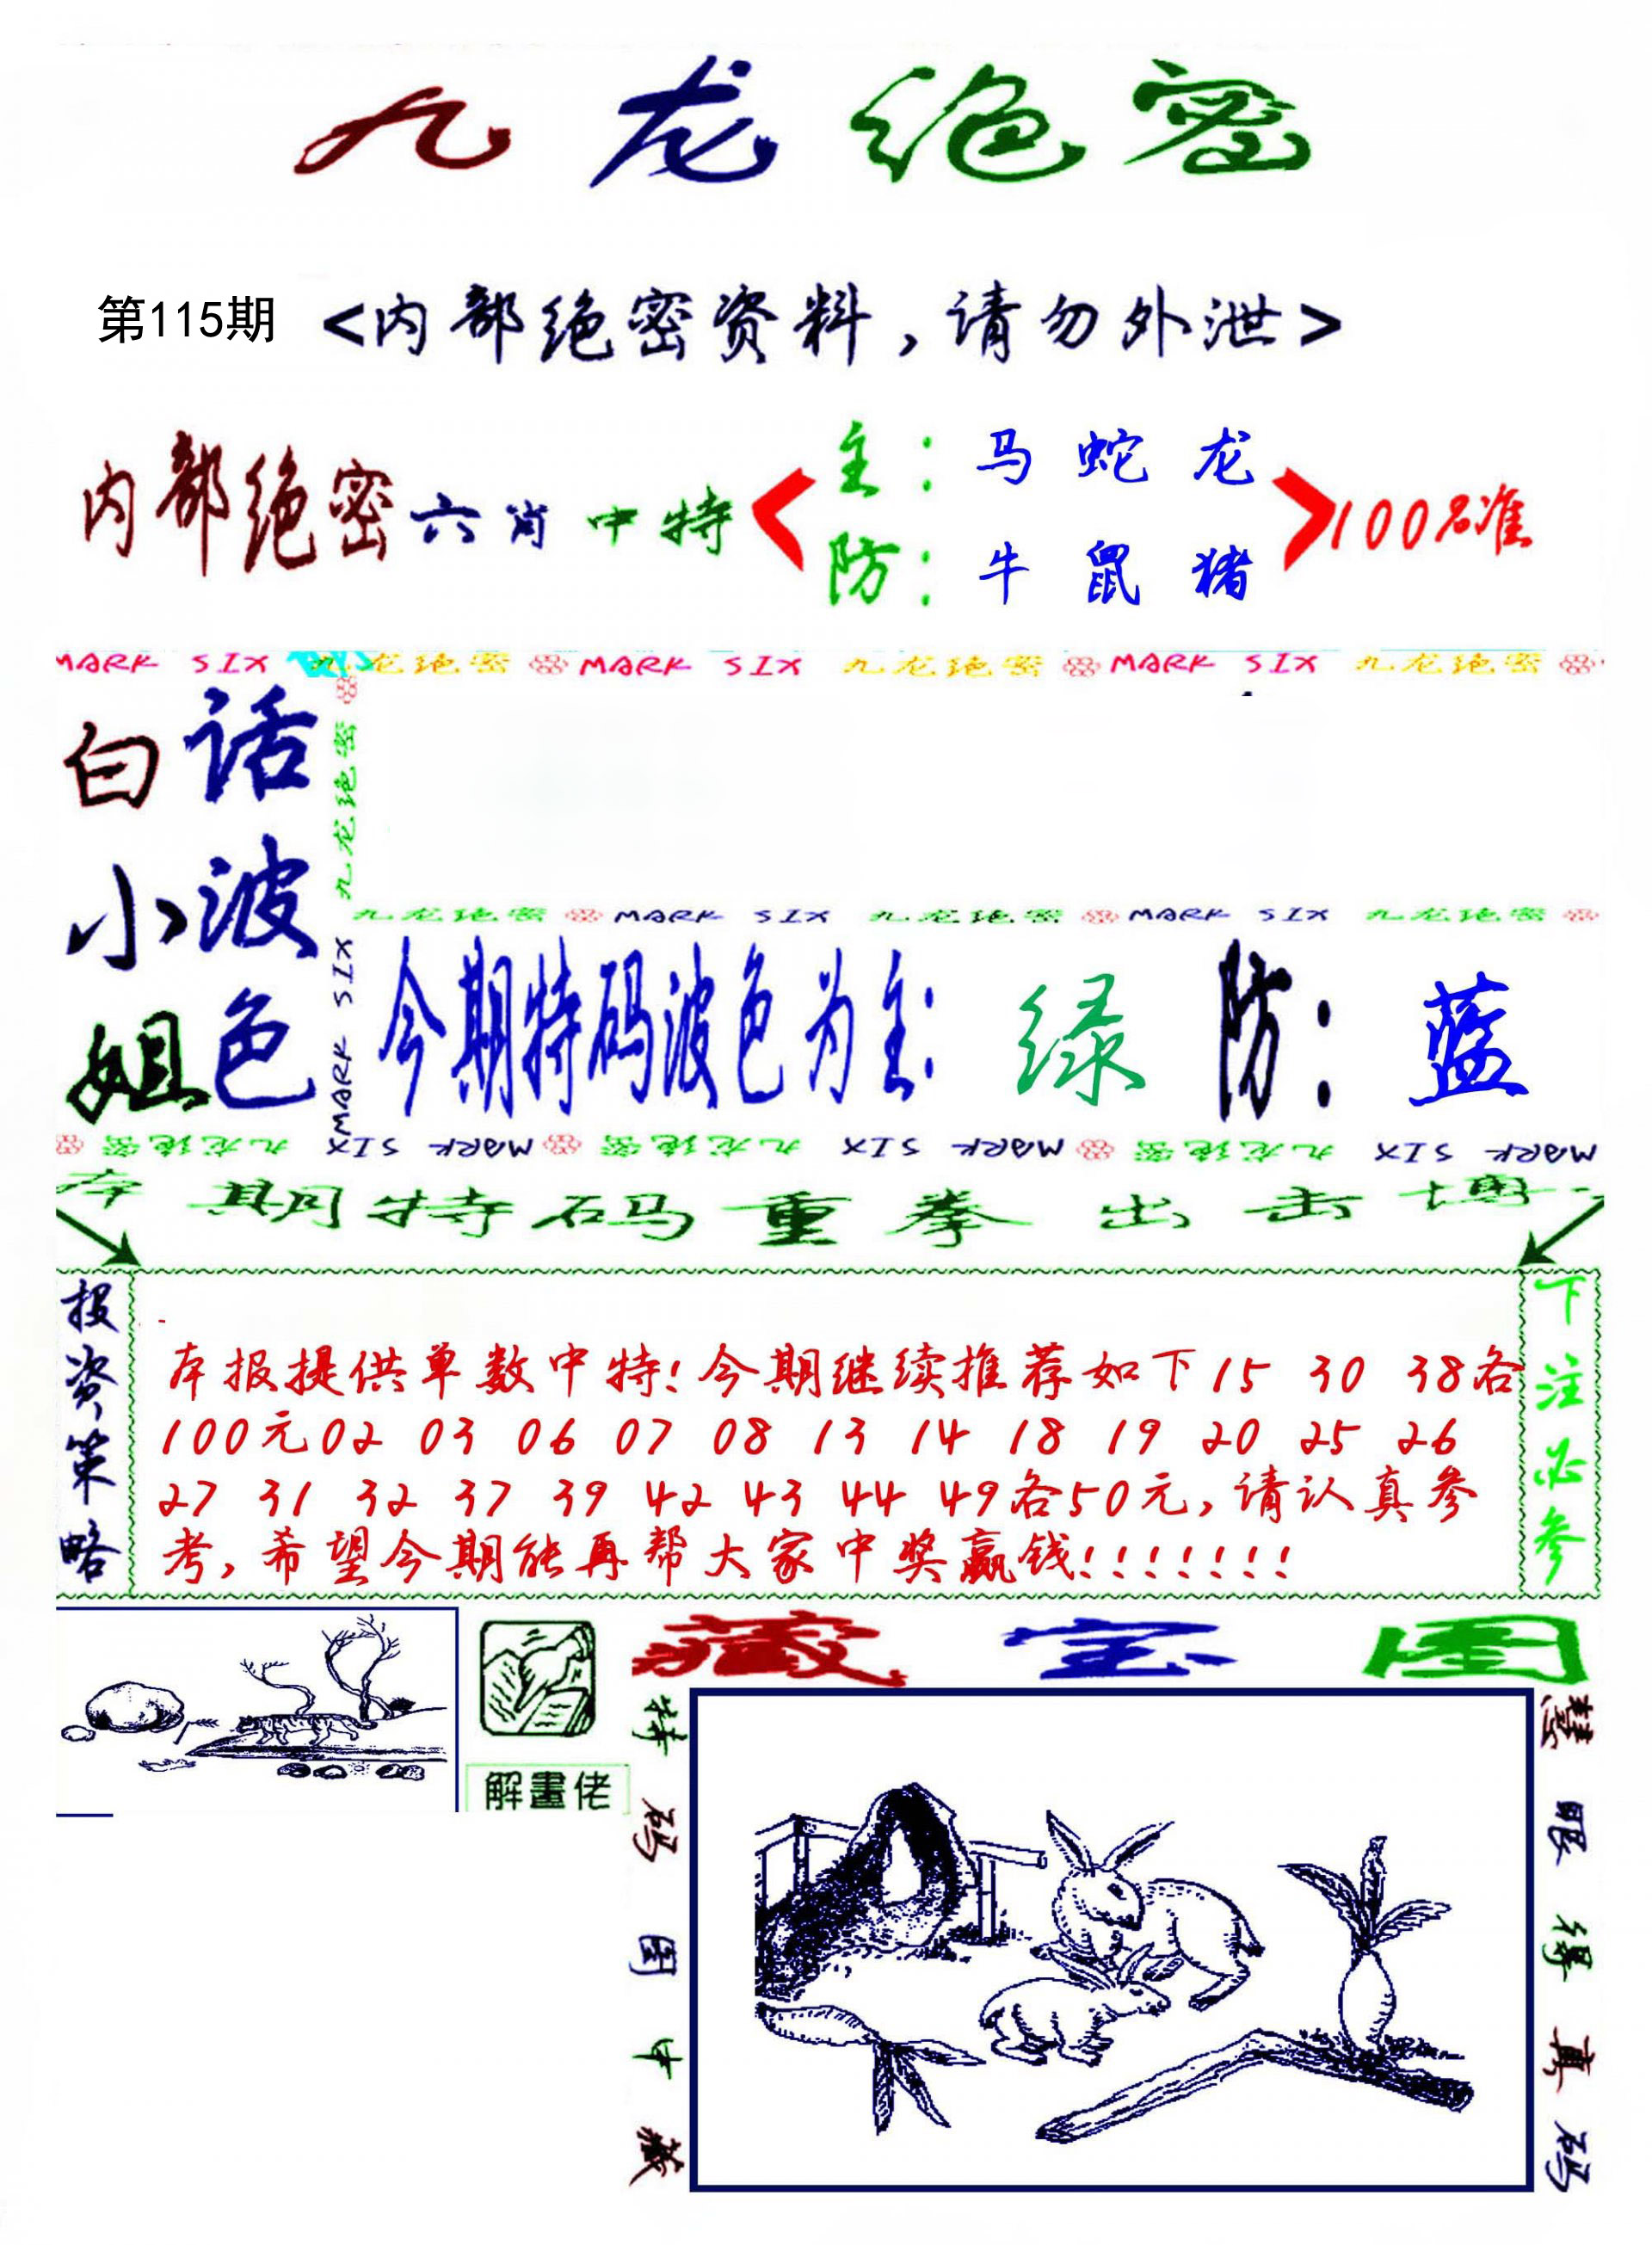 九龙绝密
第115期 <内部绝密资料，请勿外泄>
内部绝密六肖中特 < 主：马 蛇 龙
防：牛 鼠 猪 > 100%准
MARK SIX 九龙绝密 MARK SIX 九龙绝密 MARK SIX 九龙绝密
白小姐
话波色
九龙绝密
MARK SIX
九龙绝密 MARK SIX 九龙绝密 MARK SIX 九龙绝密
今期特码波色为主：绿 防：蓝
九龙绝密 MARK SIX 九龙绝密 MARK SIX 九龙绝密 MARK SIX
本期特码重拳出击博
投资策略
本报提供单数中特!今期继续推荐如下15 30 38各
100元02 03 06 07 08 13 14 18 19 20 25 26
27 31 32 37 39 42 43 44 49各50元,请认真参
考,希望今期能再帮大家中奖赢钱!!!!!!!
下注必参
解畫佬
藏宝图
特码图中藏
慧眼得真码